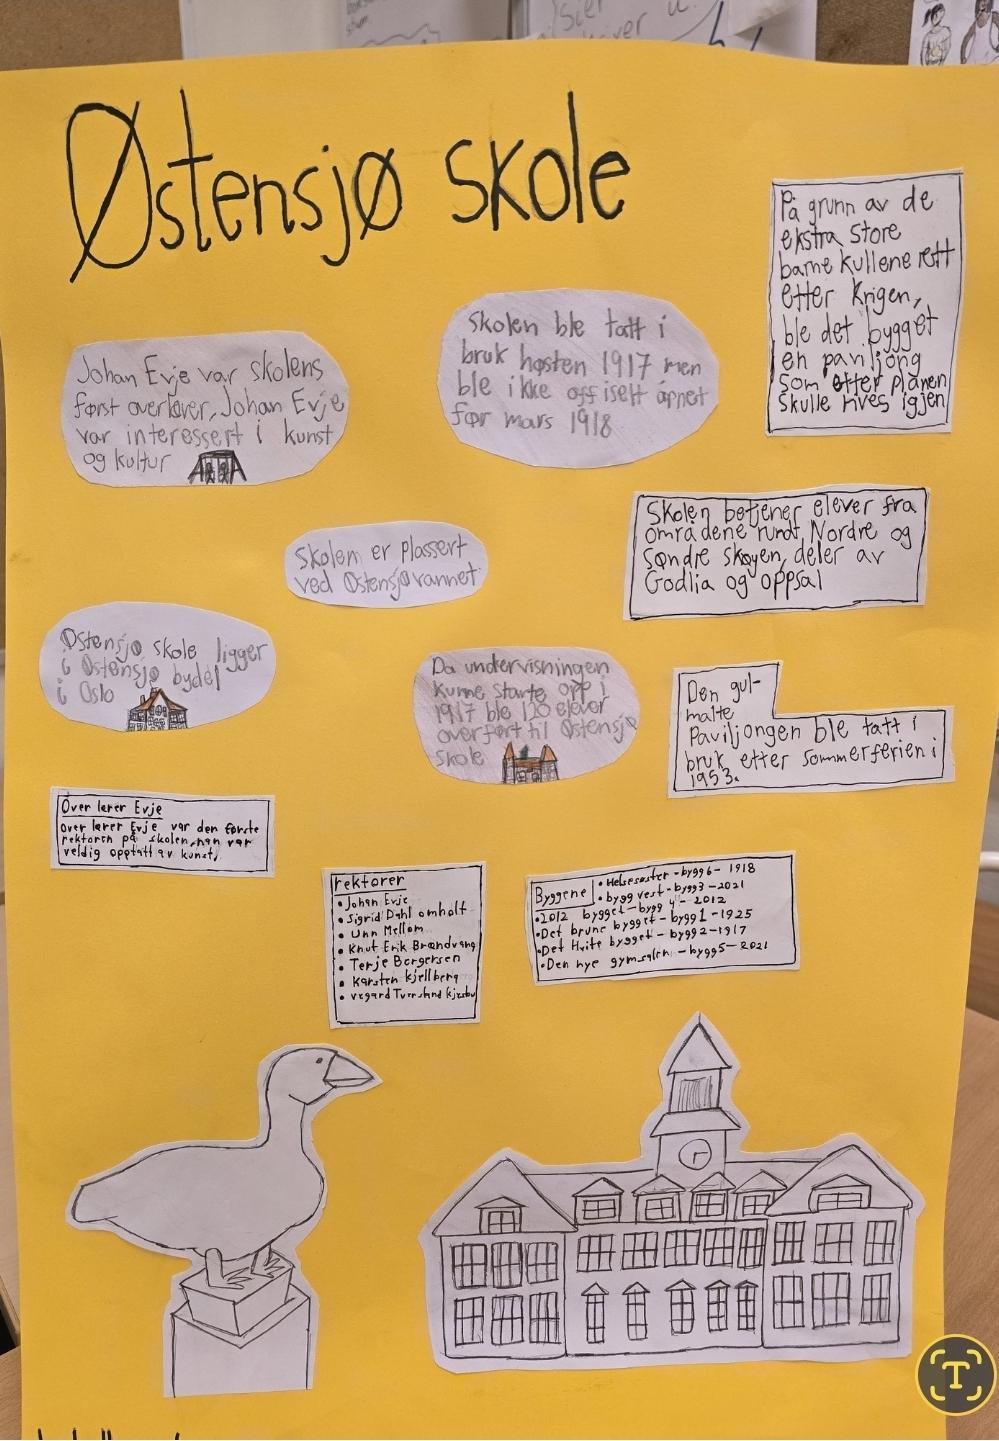 Østensjø skole
På grunn av de
ekstra store
barne kullene rett
etter krigen,
ble det bygget
en paviljong
som etter planen
skulle rives igjen
Skolen ble tatt i
bruk høsten 1917 men
ble ikke offiselt åpnet
før mars 1918
Johan Evje var skolens
først overlærer, Johan Evje
var interessert i kunst
og kultur
Skolen betjener elever fra
områdene rundt Nordre og
søndre skøyen, deler av
Godlia og oppsal
Skolen er plassert
ved Østensjøvannet
Østensjø skole ligger
i Østensjø bydel
i Oslo
Da undervisningen
kunne starte opp i
1917 ble 120 elever
overført til Østensjø
skole
Den gul-
malte
Paviljongen ble tatt i
bruk etter sommerferien i
1953.
Over lærer Evje
over lærer Evje var den første
rektoren på skolen, han var
veldig opptatt av kunst,
rektorer
• Johan Evje
• Sigrid Dahl omholt
• Unn Mellom
• Knut Erik Brændvang
• Terje Borgersen
• Karsten kjellberg
• vegard
Byggene
• Helsesøster - bygg 6 - 1918
• bygg vest - bygg 3 - 2021
• 2012 bygget - bygg 4 - 2012
• Det brune bygget - bygg 1 - 1925
• Det Hvite bygget - bygg 2 - 1917
• Den nye gymsalen - bygg 5 - 2021
T